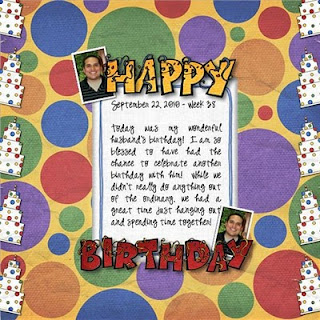 HAPPY
September 22, 2010 - Week 38
Today was my wonderful
husband's birthday! I am so
blessed to have had the
chance to celebrate another
birthday with him! While we
didn't really do anything out
of the ordinary, we had a
great time just hanging out
and spending time together!
BIRTHDAY